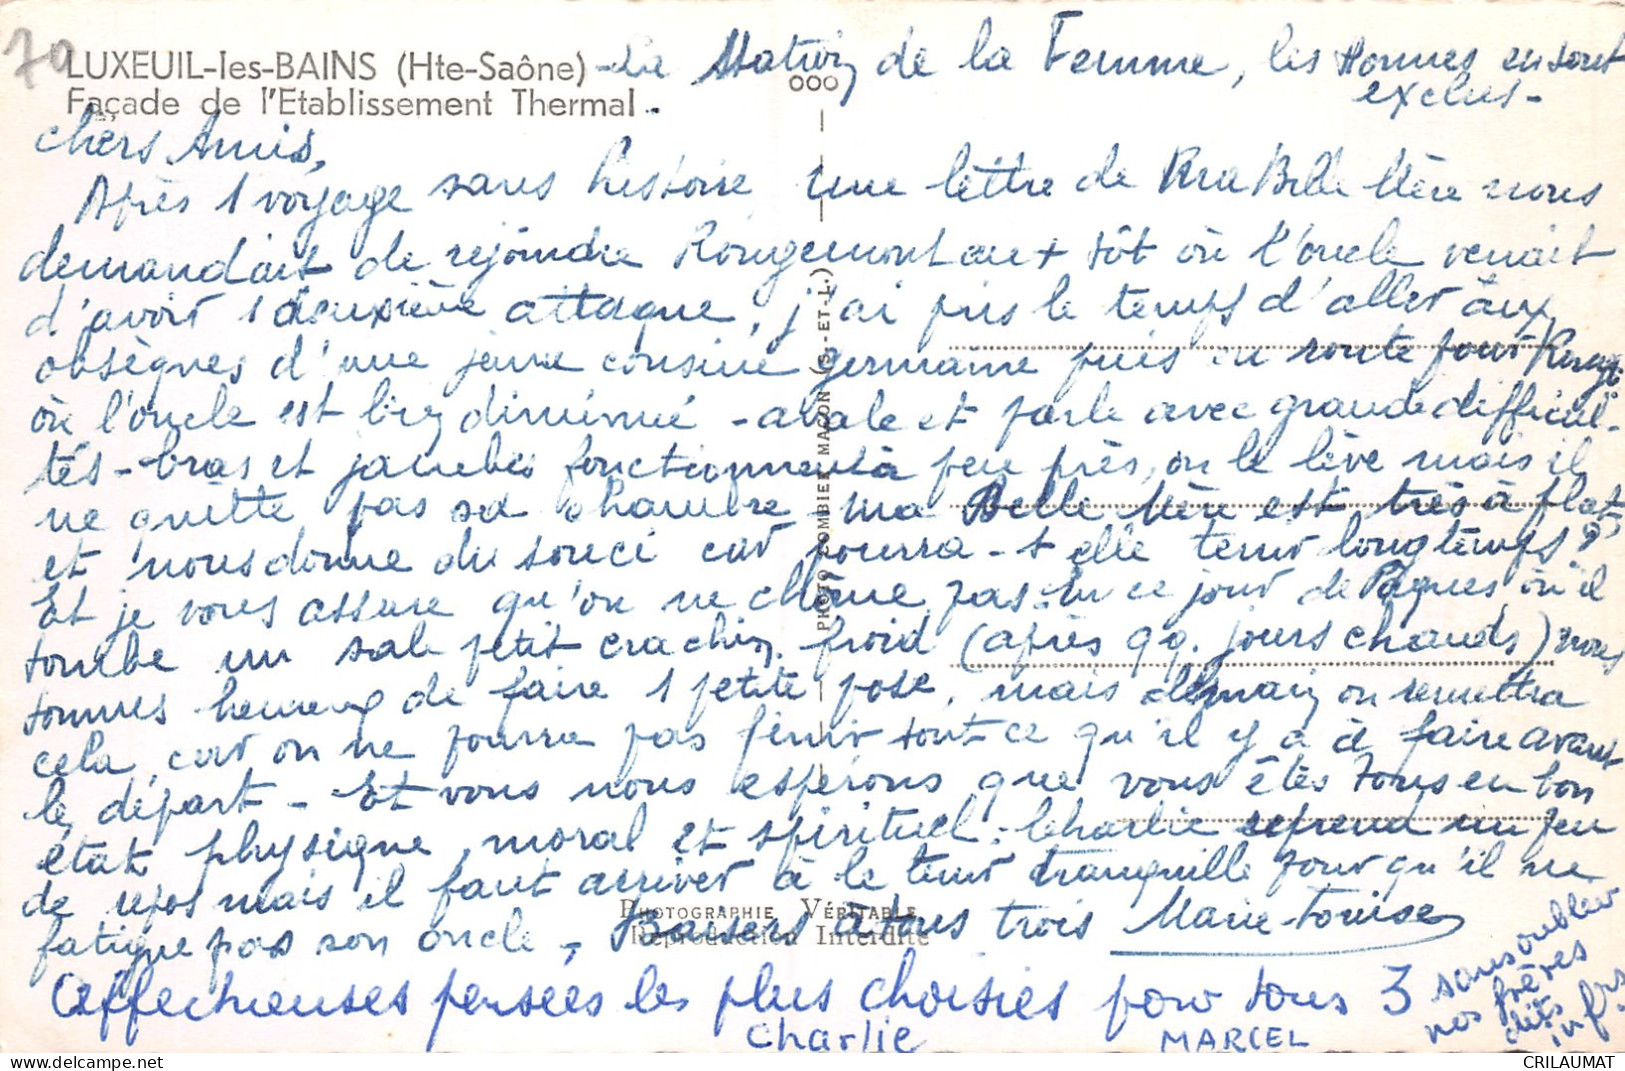 70
LUXEUIL-les-BAINS (Hte-Saône) - La Station de la Femme, les Hommes en sont
exclus -
Façade de l'Etablissement Thermal -
000
Chers Amis,
Après 1 voyage sans histoire, une lettre de Ma Belle Mère nous
demandait de rejoindre Rougemont au + tôt où l'oncle venait
d'avoir 1 deuxième attaque, j'ai pris le temps d'aller aux
obsèques d'une jeune cousine germaine puis en route pour Roug.
où l'oncle est bien diminué - avale et parle avec grande difficul-
tés - bras et jambes fonctionnent à peu près, on le lève mais il
ne quitte pas sa chambre - ma Belle Mère est très à plat,
et nous donne du souci car pourra-t-elle tenir longtemps ?
Et je vous assure qu'on ne chôme pas. En ce jour de Pâques où il
tombe un sale petit crachin froid (après qq. jours chauds) nous
sommes heureux de faire 1 petite pose, mais demain on remettra
cela, car on ne pourra pas finir tout ce qu'il y a à faire avant
le départ - Et vous nous espérons que vous êtes tous en bon
état physique, moral et spirituel. Charlie reprend un peu
de repos mais il faut arriver à le tenir tranquille pour qu'il ne
fatigue pas son oncle, Baisers à tous trois Marie Louise
Affectueuses pensées les plus choisies pour tous 3 sans oublier
nos frères
dits
Charlie MARCEL
PHOTO COMBIER MACON (S.-ET-L.)
PHOTOGRAPHIE VÉRITABLE
Reproduction Interdite
CRILAUMAT